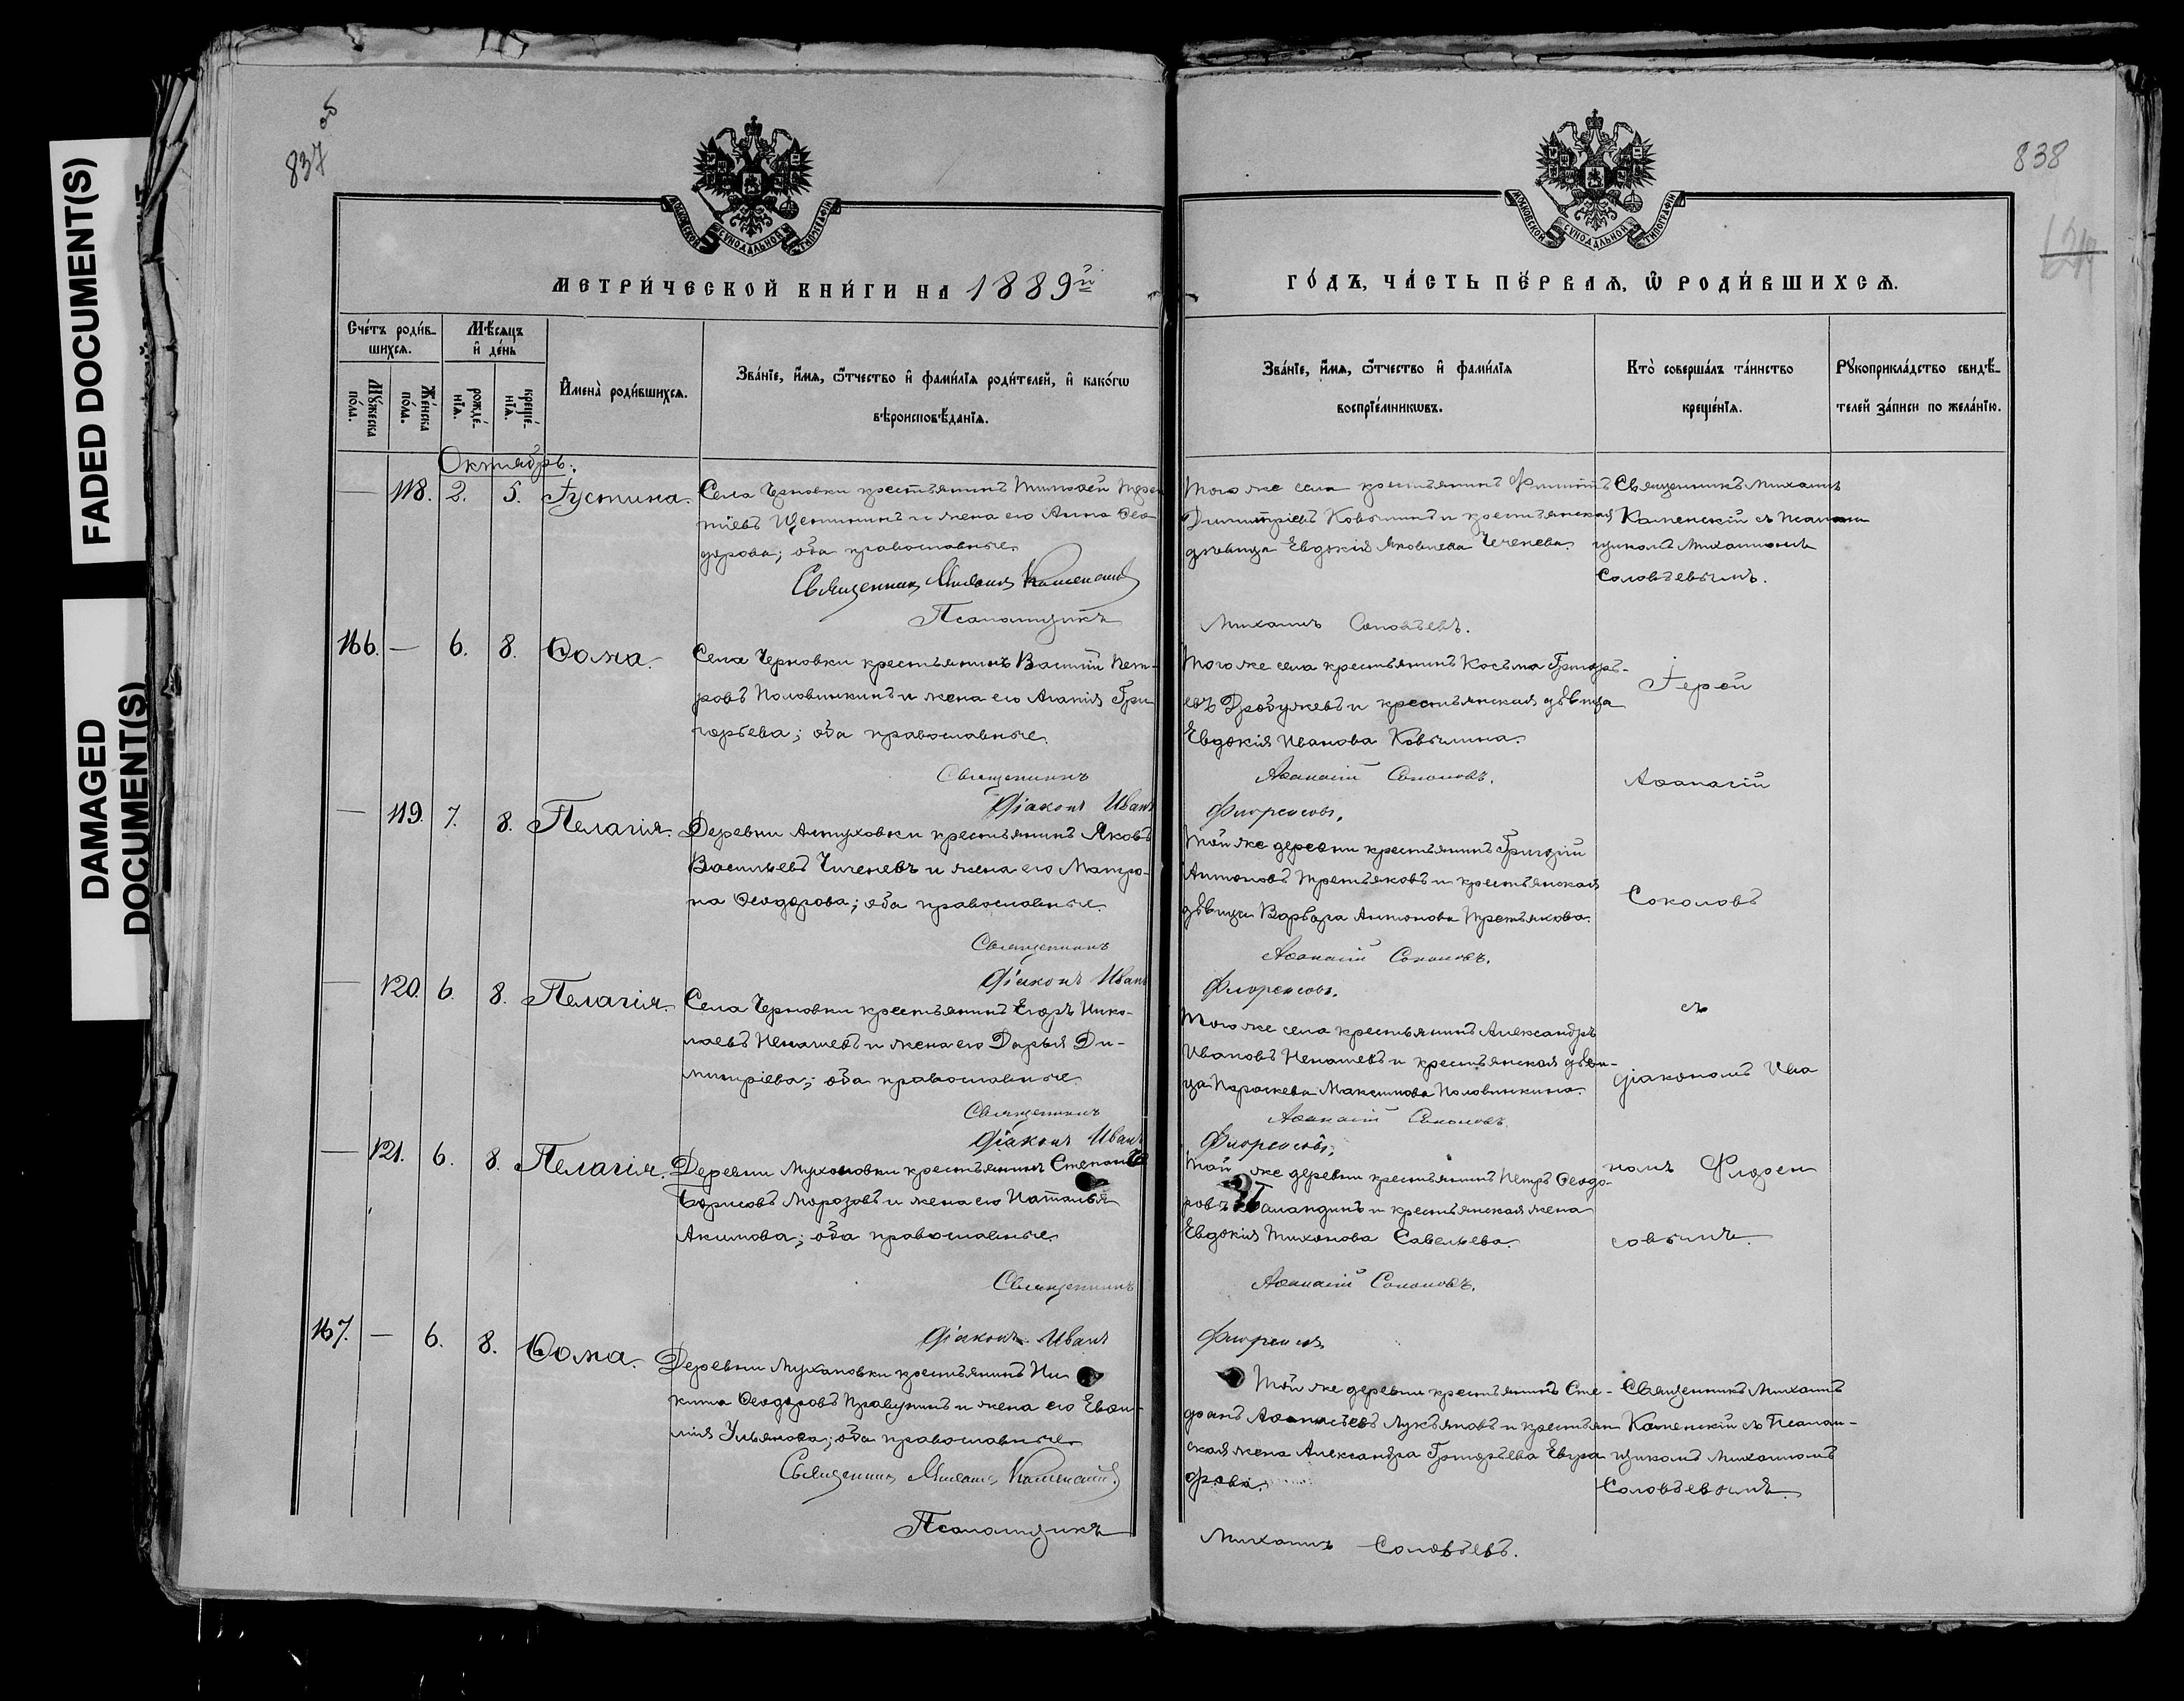 FADED DOCUMENT(S)
DAMAGED
DOCUMENT(S)
837 об
838
МОСКОВСКОЙ СѴНОДАЛЬНОЙ ТИПОГРАФІИ
МОСКОВСКОЙ СѴНОДАЛЬНОЙ ТИПОГРАФІИ
МЕТРИ́ЧЕСКОЙ КНИ́ГИ НА 1889й
ГО́ДЪ, ЧА́СТЬ ПЕ́РВАѦ, Ѡ҆ РОДИ́ВШИХСѦ.
Сче́тъ роди́в-
шихсѧ.
Мѣ́сѧцъ
и҆ де́нь
Мꙋ́жеска
по́ла.
Же́нска
по́ла.
рожде́-
нїѧ.
креще́-
нїѧ.
И҆мена̀ роди́вшихсѧ.
Зва́нїе, и҆́мѧ, ѻ҆́тчество и҆ фами́лїѧ роди́телей, и҆ како́гѡ
вѣроисповѣ́данїѧ.
Зва́нїе, и҆́мѧ, ѻ҆́тчество и҆ фами́лїѧ
воспрїе́мникѡвъ.
Кто̀ соверша́лъ та́инство
креще́нїѧ.
Рꙋкоприкла́дство свидѣ́-
телей за́писи по жела́нїю.
Октябрь.
— 118. 2. 5. Іустина.
Села Черновки крестьянинъ Тимоѳей Терен
тіевъ Щетининъ и жена его Анна Ѳео-
дорова; оба православные.
Священникъ Михаилъ Каменскій
Псаломщикъ
Того же села крестьянинъ Филиппъ
Димитріевъ Ковылинъ и крестьянская
дѣвица Евдокія Яковлева Чеченева.
Михаилъ Соловьевъ.
Священникъ Михаилъ
Каменскій съ псалом
щикомъ Михаиломъ
Соловьевымъ.
166. — 6. 8. Ѳома.
Села Черновки крестьянинъ Василій Пет-
ровъ Половинкинъ и жена его Агапія Гри
горьева; оба православные.
Священникъ
Діаконъ Иванъ
Того же села крестьянинъ Косьма Григорь-
евъ Дробужевъ и крестьянская дѣвица
Евдокія Иванова Ковылина.
Аѳанасій Соколовъ.
Флоренсовъ.
Іерей
Аѳанасій
— 119. 7. 8. Пелагія.
Деревни Алтуховки крестьянинъ Яковъ
Васильевъ Чиченевъ и жена его Матро-
на Ѳеодорова; оба православные.
Священникъ
Діаконъ Иванъ
Той же деревни крестьянинъ Григорій
Антоновъ Третьяковъ и крестьянская
дѣвица Варвара Антонова Третьякова.
Аѳанасій Соколовъ.
Флоренсовъ.
Соколовъ
— 120. 6. 8. Пелагія.
Села Черновки крестьянинъ Егоръ Нико-
лаевъ Ненашевъ и жена его Дарья Ди-
митріева; оба православные.
Священникъ
Діаконъ Иванъ
Того же села крестьянинъ Александръ
Ивановъ Ненашевъ и крестьянская дѣви-
ца Параскева Максимова Половинкина.
Аѳанасій Соколовъ.
Флоренсовъ.
съ
діакономъ Ива
— 121. 6. 8. Пелагія.
Деревни Мухановки крестьянинъ Степанъ
Борисовъ Морозовъ и жена его Наталья
Акимова; оба православные.
Священникъ
Діаконъ Иванъ
Той же деревни крестьянинъ Петръ Ѳеодо-
ровъ и крестьянская жена
Евдокія Тихонова Савельева.
Аѳанасій Соколовъ.
Флоренсовъ
номъ Флорен
совымъ.
167. — 6. 8. Ѳома.
Деревни Мухановки крестьянинъ Ни
кита Ѳеодоровъ и жена его Евѳи-
мія Ульянова; оба православные.
Священникъ Михаилъ Каменскій.
Псаломщикъ
Той же деревни крестьянинъ Сте-
фанъ Аѳанасьевъ Лукьяновъ и крестьян
ская жена Александра Григорьева Евгра
фова.
Михаилъ Соловьевъ.
Священникъ Михаилъ
Каменскій съ Псалом-
щикомъ Михаиломъ
Соловьевымъ.